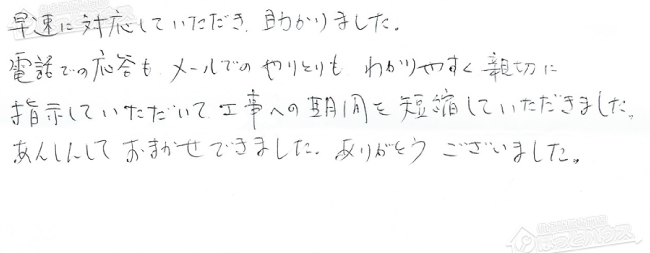 早速に対応していただき、助かりました。
電話での応答も、メールでのやりとりも、わかりやすく親切に
指示していただいて、工事への期間を短縮していただきました。
あんしんして おまかせできました。ありがとう ございました。